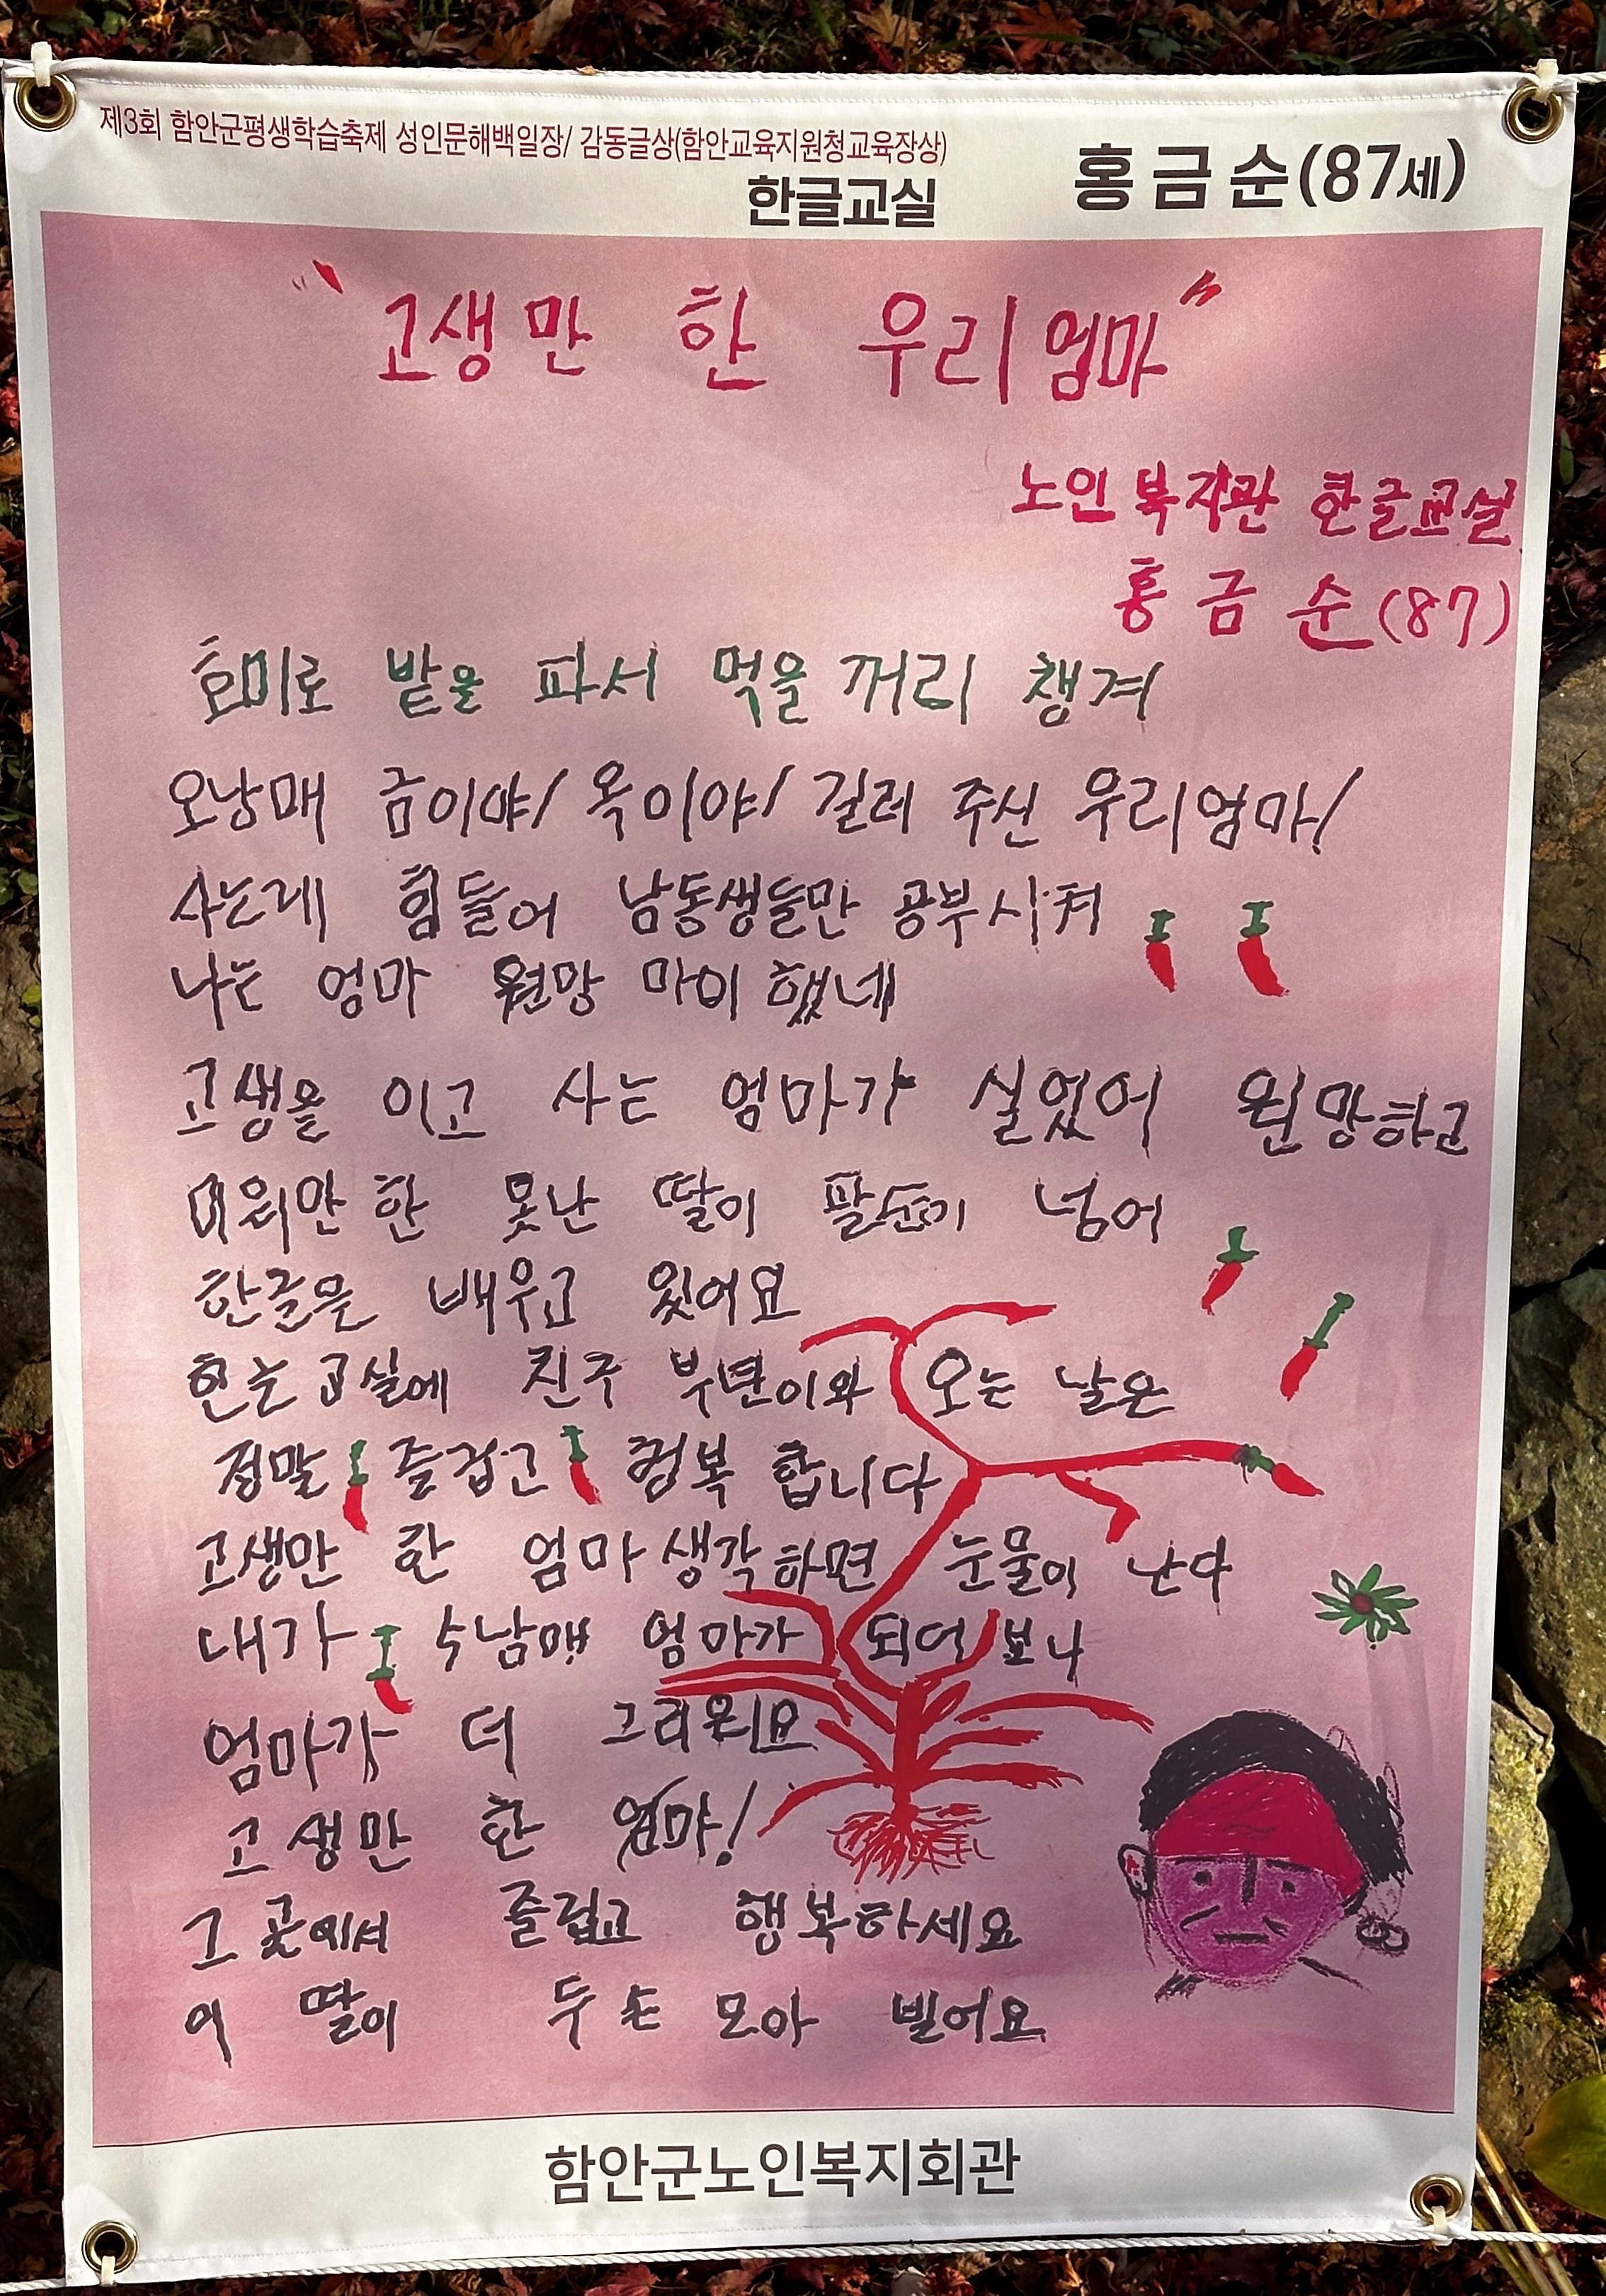 제3회 함안군평생학습축제 성인문해백일장/ 감동글상(함안교육지원청교육장상)
한글교실
홍금순(87세)
"고생만 한 우리엄마"
노인복지관 한글교실
홍금순(87)
호미로 밭을 파서 먹을 꺼리 챙겨
오남매 금이야! 옥이야! 길러 주신 우리엄마!
사는게 힘들어 남동생들만 공부시켜
나는 엄마 원망 마이 했네
고생을 이고 사는 엄마가 실었어 원망하고
미워만 한 못난 딸이 팔순이 넘어
한글을 배우고 있어요
한글교실에 친구 부년이와 오는 날은
정말 즐겁고 행복 합니다
고생만 한 엄마 생각하면 눈물이 난다
내가 4남매 엄마가 되어 보니
엄마가 더 그리워요
고생만 한 엄마!
그 곳에서 즐겁고 행복하세요
이 딸이 두 손 모아 빌어요
함안군노인복지회관